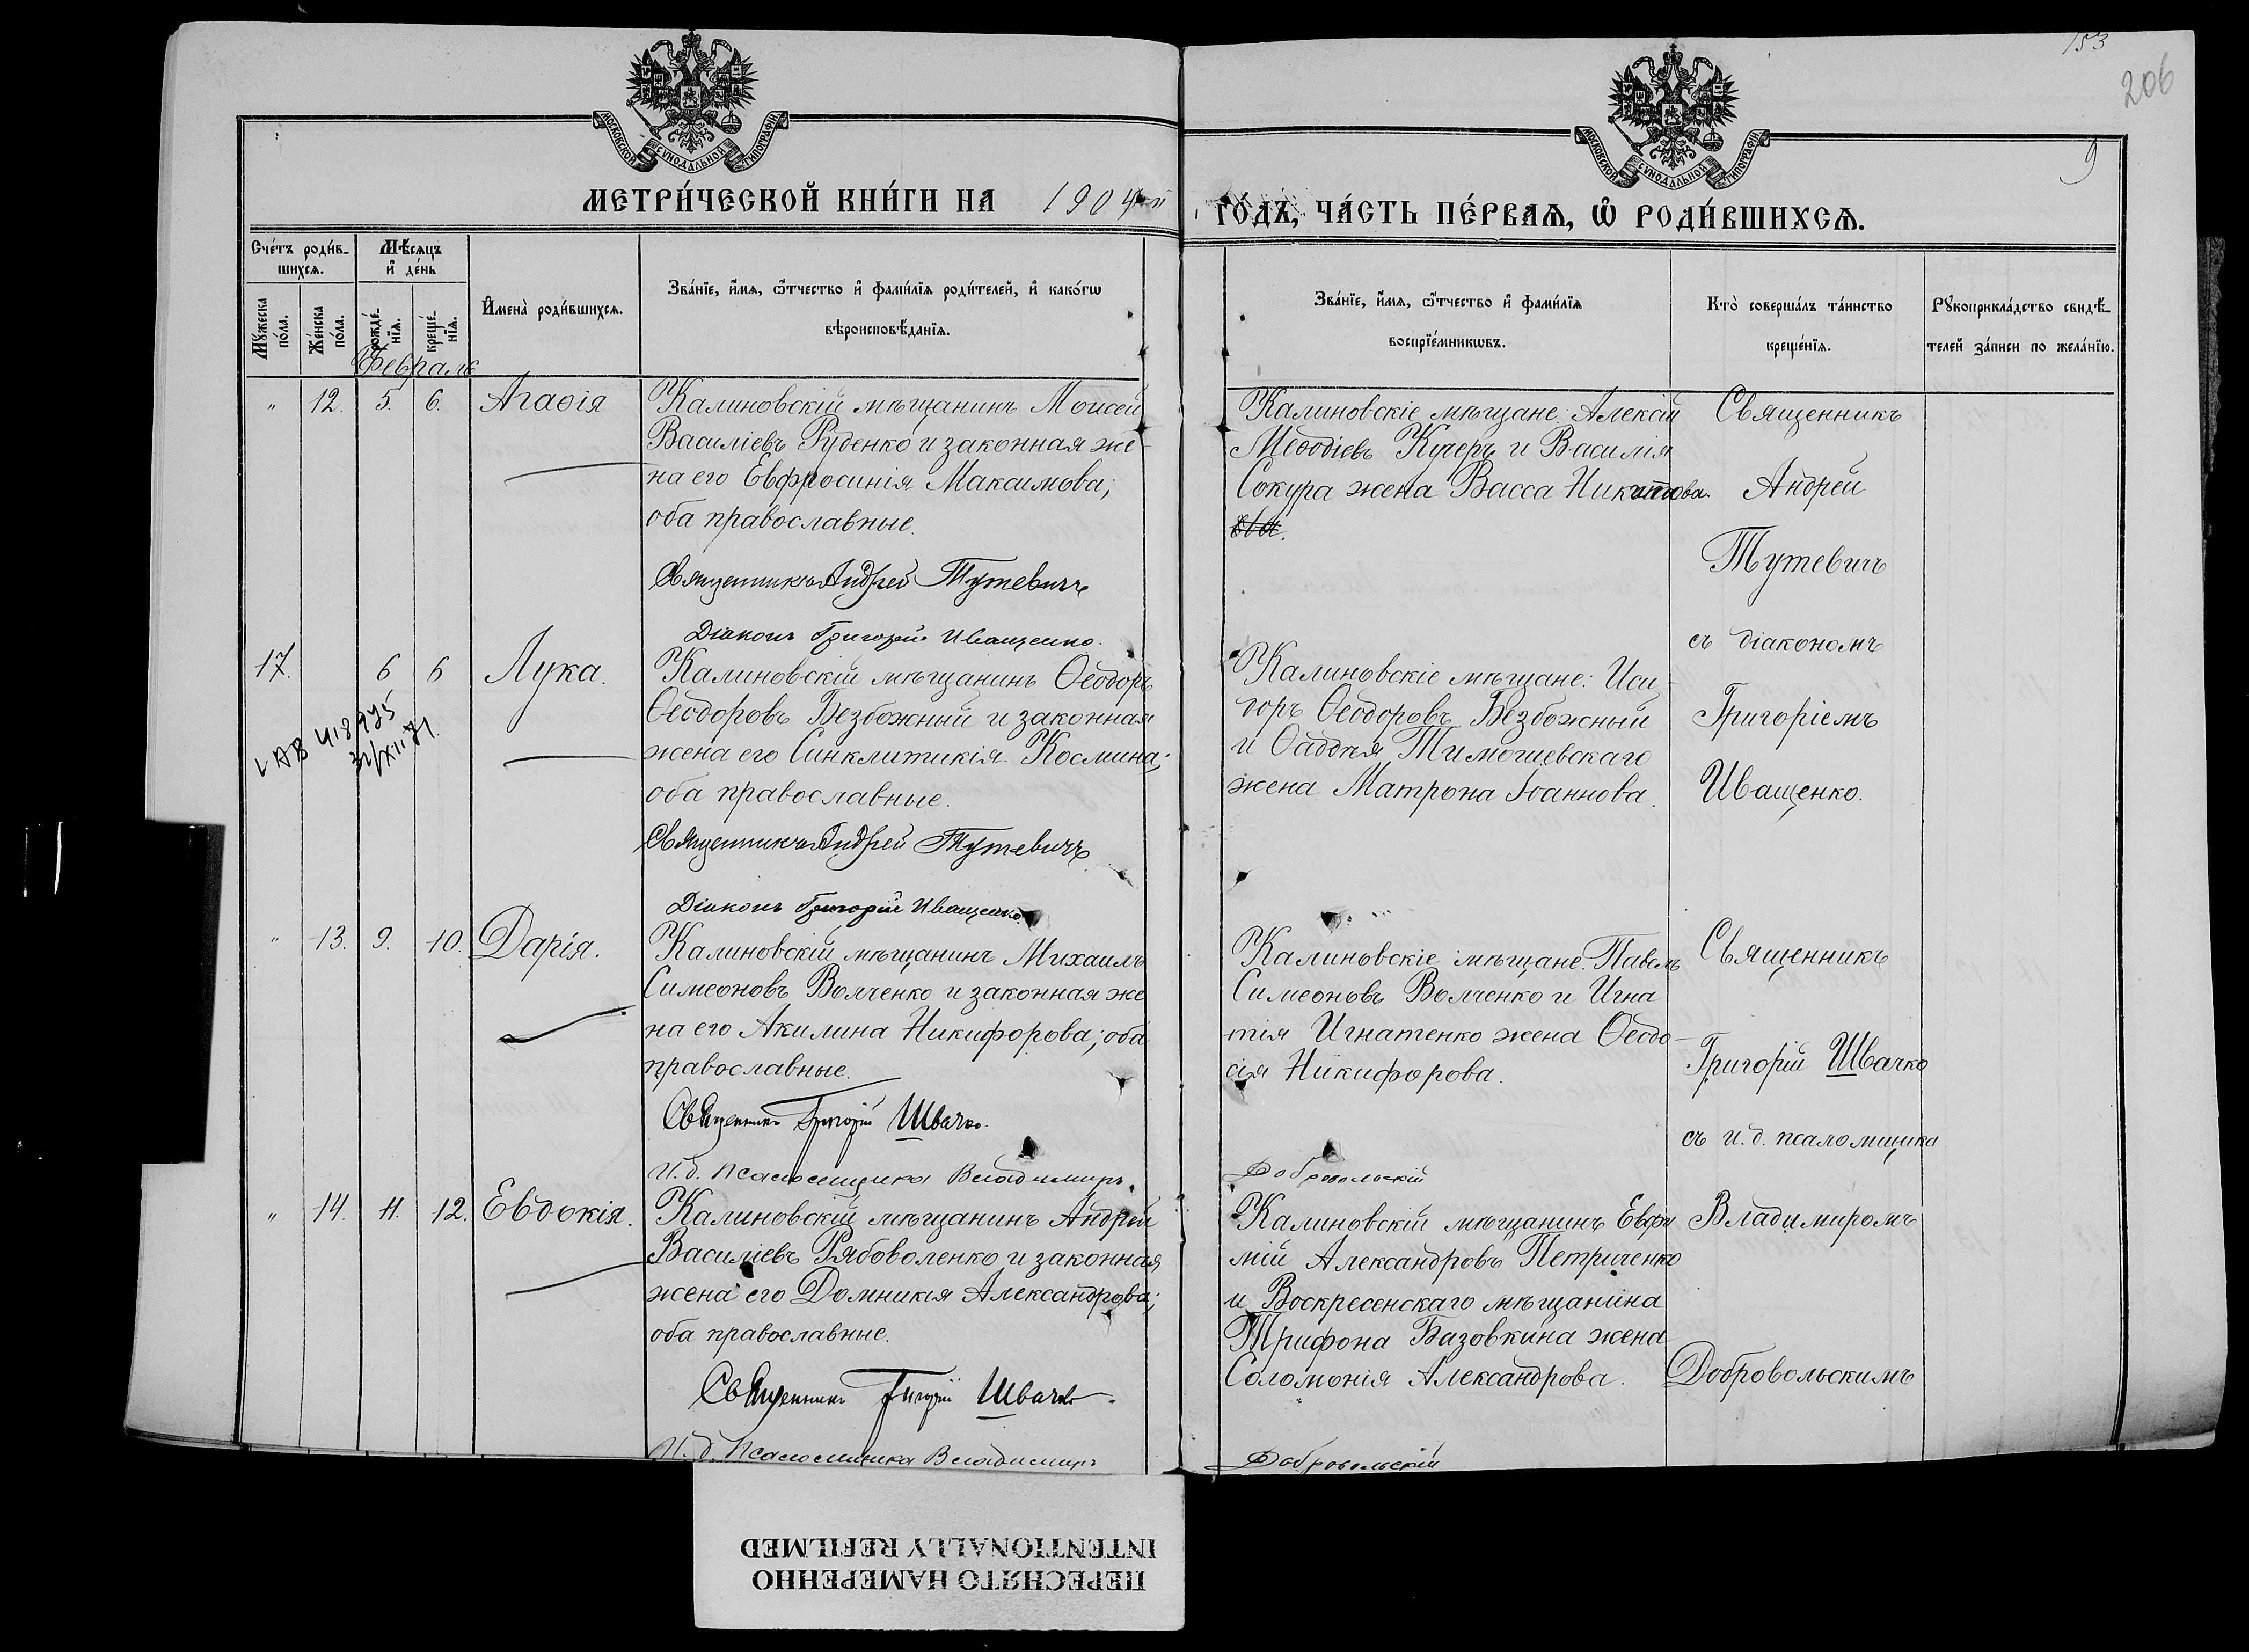 153
206
9
МОСКОВСКОЙ СѴНОДАЛЬНОЙ ТИПОГРАФІИ
МОСКОВСКОЙ СѴНОДАЛЬНОЙ ТИПОГРАФІИ
МЕТРИ́ЧЕСКОЙ КНИ́ГИ НА 1904
ГО́ДЪ, ЧА́СТЬ ПЕ́РВАѦ, Ѡ РОДИ́ВШИХСѦ.
Сче́тъ роди́в-
шихсѧ.
Мѣ́сѧцъ
и де́нь
Мꙋ́жеска
по́ла.
Же́нска
по́ла.
рожде́-
нїѧ.
креще́-
нїѧ.
Имена̀ роди́вшихсѧ.
Зва́нїе, и́мѧ, ѻ́тчество и фами́лїѧ роди́телей, и како́гѡ
вѣроисповѣ́данїѧ.
Зва́нїе, и́мѧ, ѻ́тчество и фами́лїѧ
воспрїе́мникѡвъ.
Кто̀ соверша́лъ та́инство
креще́нїѧ.
Рꙋкоприкла́дство свидѣ́-
телей за́писи по жела́нїю.
Февраль
" 12. 5. 6. Агаѳія
Калиновскій мѣщанинъ Моисей
Василіевъ Руденко и законная же-
на его Евфросинія Максимова;
оба православные.
Священникъ Андрей Тутевичъ
Діаконъ Григорій Иващенко.
Калиновскіе мѣщане: Алексій
Меѳодіевъ Кучеръ и Василія
Сокура жена Васса Никитова.
Священникъ
Андрей
Тутевичъ
съ діакономъ
Григоріемъ
Иващенко.
17. 6 6 Лука.
418945
31/XII 71.
Калиновскій мѣщанинъ Ѳеодоръ
Ѳеодоровъ Безбожный и законная
жена его Синклитикія Космина;
оба православные.
Священникъ Андрей Тутевичъ
Діаконъ Григорій Иващенко.
Калиновскіе мѣщане: Иси-
доръ Ѳеодоровъ Безбожный
и Ѳаддея Тимошевскаго
жена Матрона Іоаннова.
" 13. 9. 10. Дарія.
Калиновскій мѣщанинъ Михаилъ
Симеоновъ Волченко и законная же
на его Акилина Никифорова; оба
православные.
Священникъ Григорій Швачко.
И. д. псаломщика Владимиръ
Добровольскій
Калиновскіе мѣщане: Павелъ
Симеоновъ Волченко и Игна
тія Игнатенко жена Ѳеодо-
сія Никифорова.
Священникъ
Григорій Швачко
съ и. д. псаломщика
Владимиромъ
Добровольскимъ
" 14. 11. 12. Евдокія.
Калиновскій мѣщанинъ Андрей
Василіевъ Рябоволенко и законная
жена его Домникія Александрова;
оба православные.
Священникъ Григорій Швачко.
И. д. Псаломщика Владимиръ
Добровольскій
Калиновскій мѣщанинъ Евфи
мій Александровъ Петриченко
и Воскресенскаго мѣщанина
Трифона Базовкина жена
Соломонія Александрова.
ПЕРЕСНЯТО НАМЕРЕННО
INTENTIONALLY REFILMED